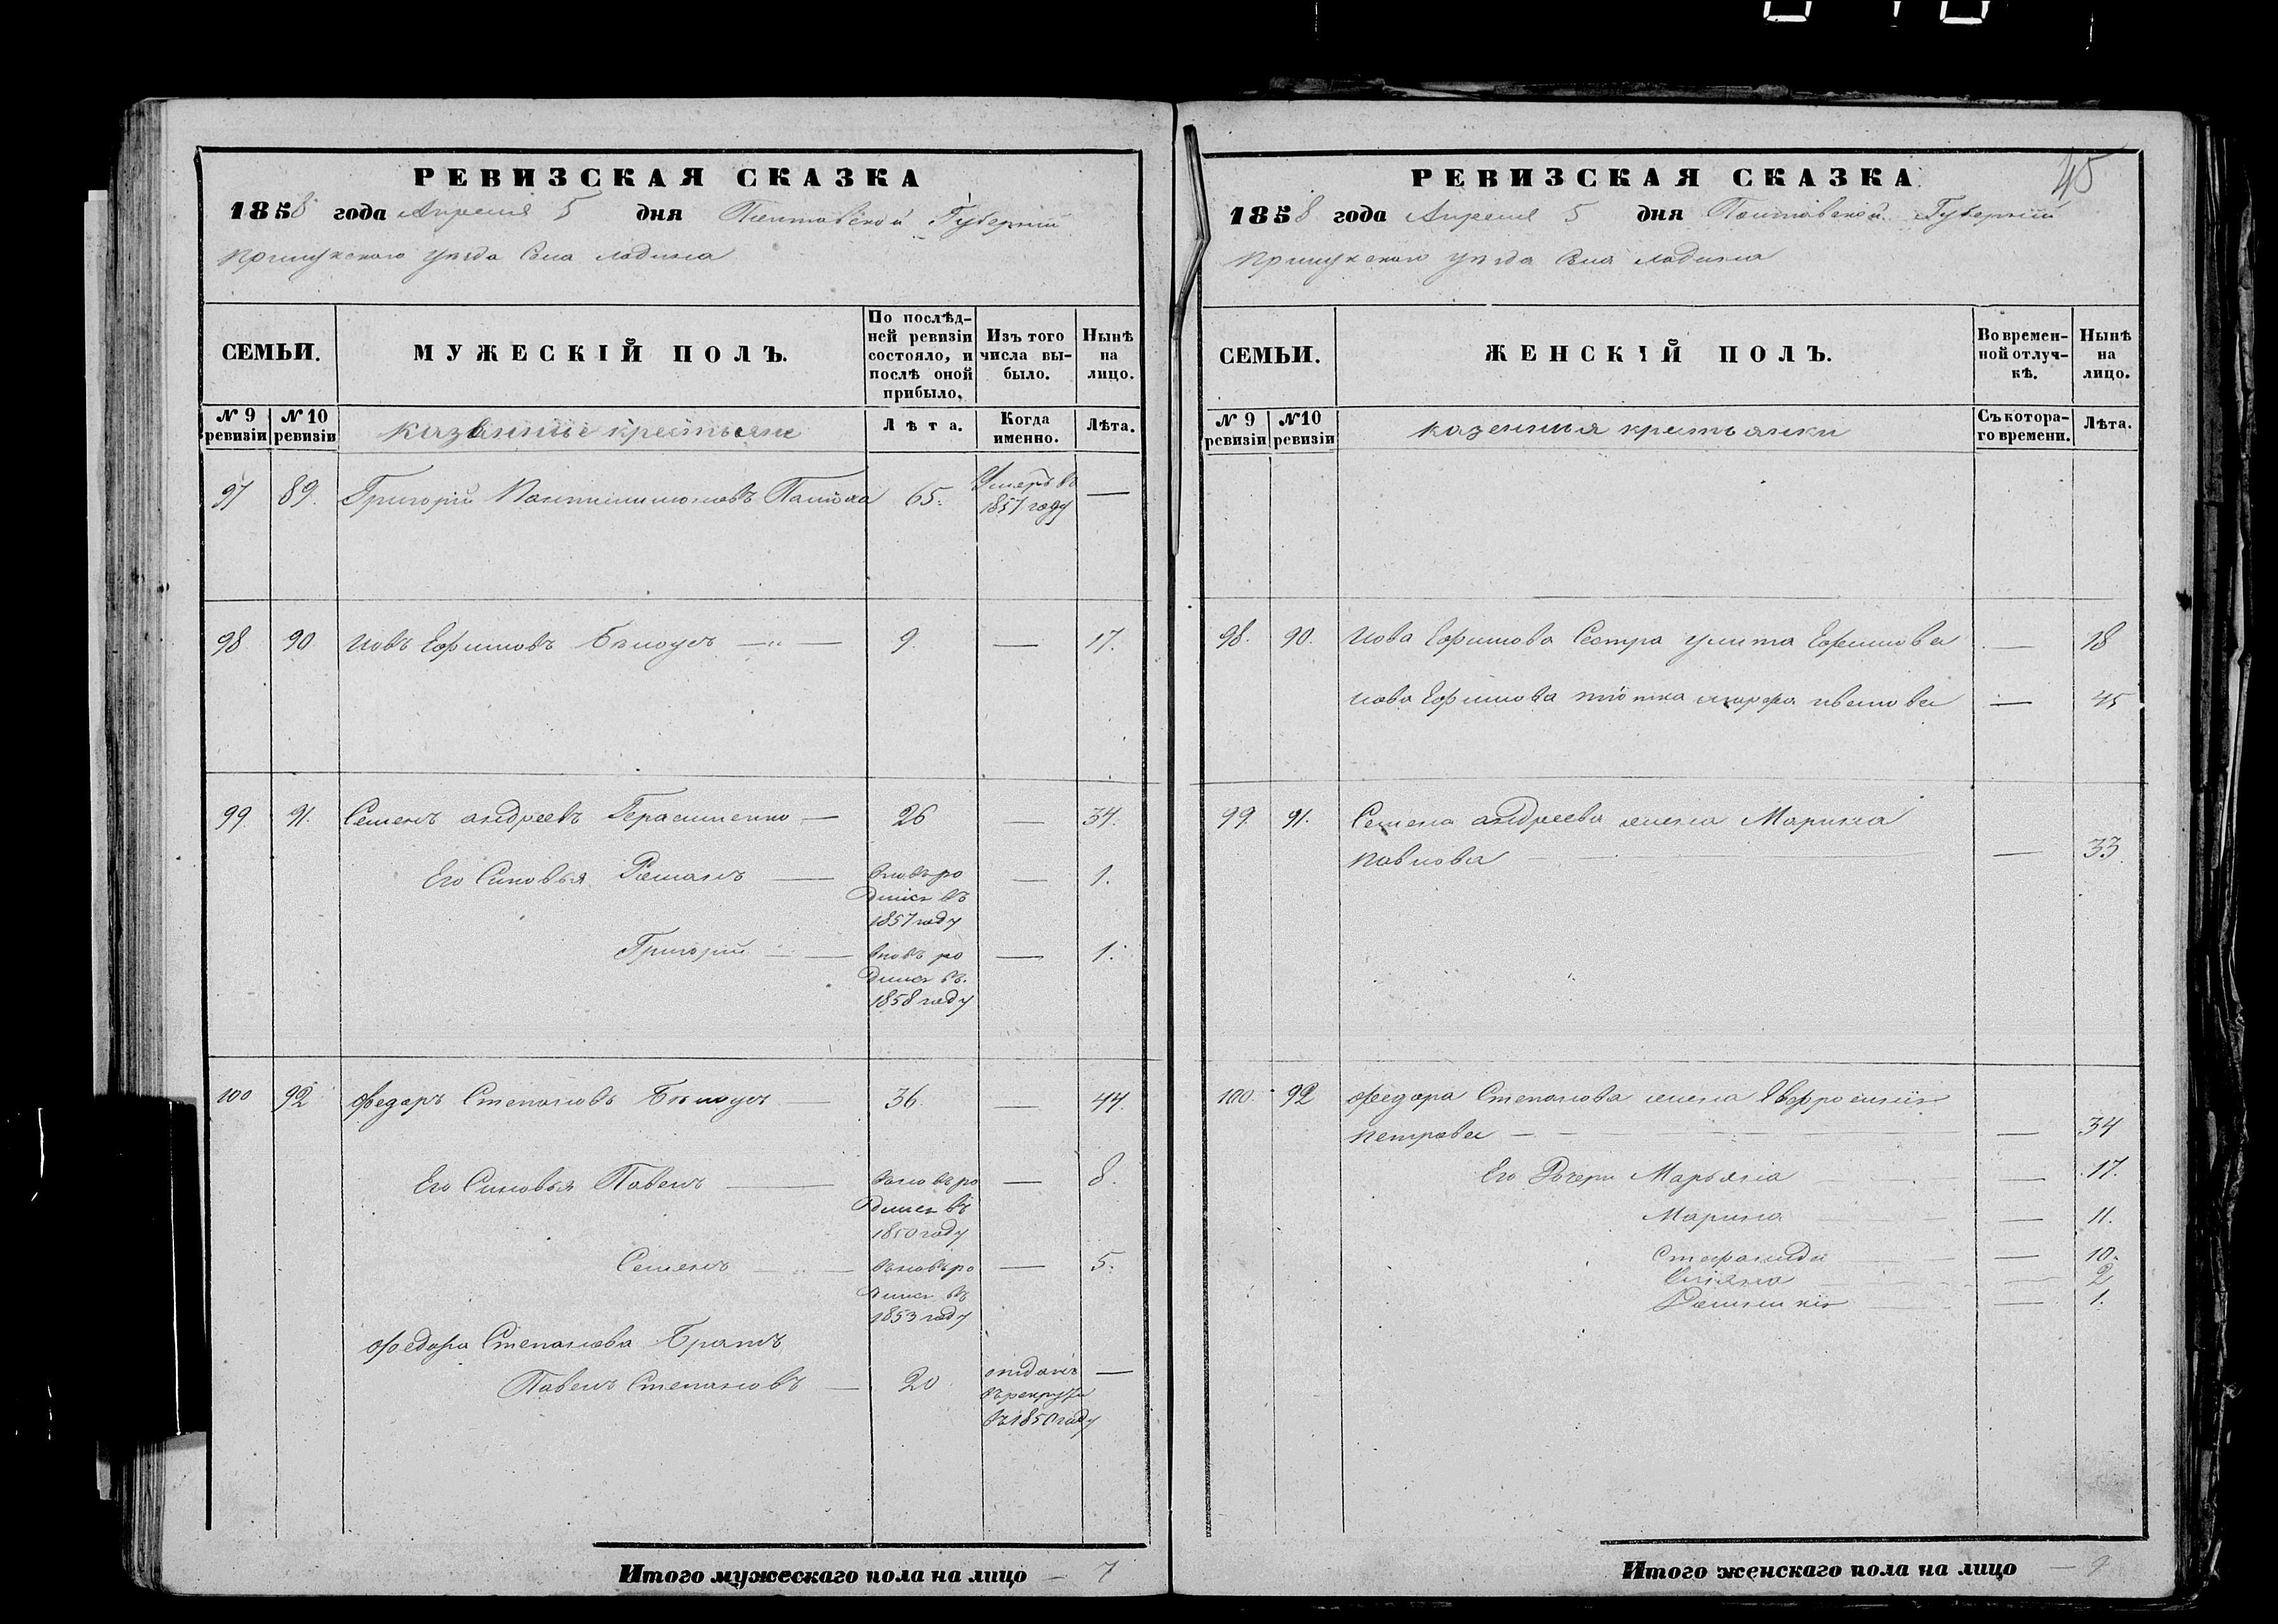 РЕВИЗСКАЯ СКАЗКА
1858 года Апреля 5 дня Полтавской Губерніи
Прилукского уезда Села Ладина
СЕМЬИ.
МУЖЕСКІЙ ПОЛЪ.
По послѣд-
ней ревизіи
состояло, и
послѣ оной
прибыло.
Изъ того
числа вы-
было.
Нынѣ
на
лицо.
№ 9
ревизіи
№ 10
ревизіи
казенные крестьяне
Лѣта.
Когда
именно.
Лѣта.
97 89. Григорій Пантилимоновъ 65. Умеръ въ —
1857 году
98 90 Иовъ Ефимовъ Белоусъ — 9. — 17.
99. 91. Семенъ андреевъ Герасименко — 26 — 34.
Его Синовья Романъ — вновъ ро — 1.
дился въ
1857 году
Григорій — вновъ ро — 1.
дился въ.
1858 году
100 92 федоръ Степановъ Белоусъ — 36. — 44.
Его Синовья Павелъ — вновъ ро — 8.
дился въ
1850 году
Семенъ — вновъ ро — 5.
дился въ
1853 году
федора Степанова Братъ
Павелъ Степановъ — 20 отданъ —
въ рекруты
въ 185 году
Итого мужескаго пола на лицо — 7
45
РЕВИЗСКАЯ СКАЗКА
1858 года Апреля 5 дня Полтавской Губерніи
Прилукского уезда Села Ладина
СЕМЬИ.
ЖЕНСКІЙ ПОЛЪ.
Во времен-
ной отлуч-
кѣ.
Нынѣ
на
лицо.
№ 9
ревизіи
№ 10
ревизіи
казенныя крестьянки
Съ котора-
го времени.
Лѣта.
98. 90. Иова Ефимова Сестра улита Ефимова — 18
Иова Ефимова тіотка марфа — 45
99. 91. Семена андреева жена Марина
Павлова — 33.
100. 92 федора Степанова жена Евфросинія
Петрова — 34
Его Дочери Марьяна — 17.
Марина — 11.
Стефанида — 10.
— 2
— 1.
Итого женскаго пола на лицо — 9